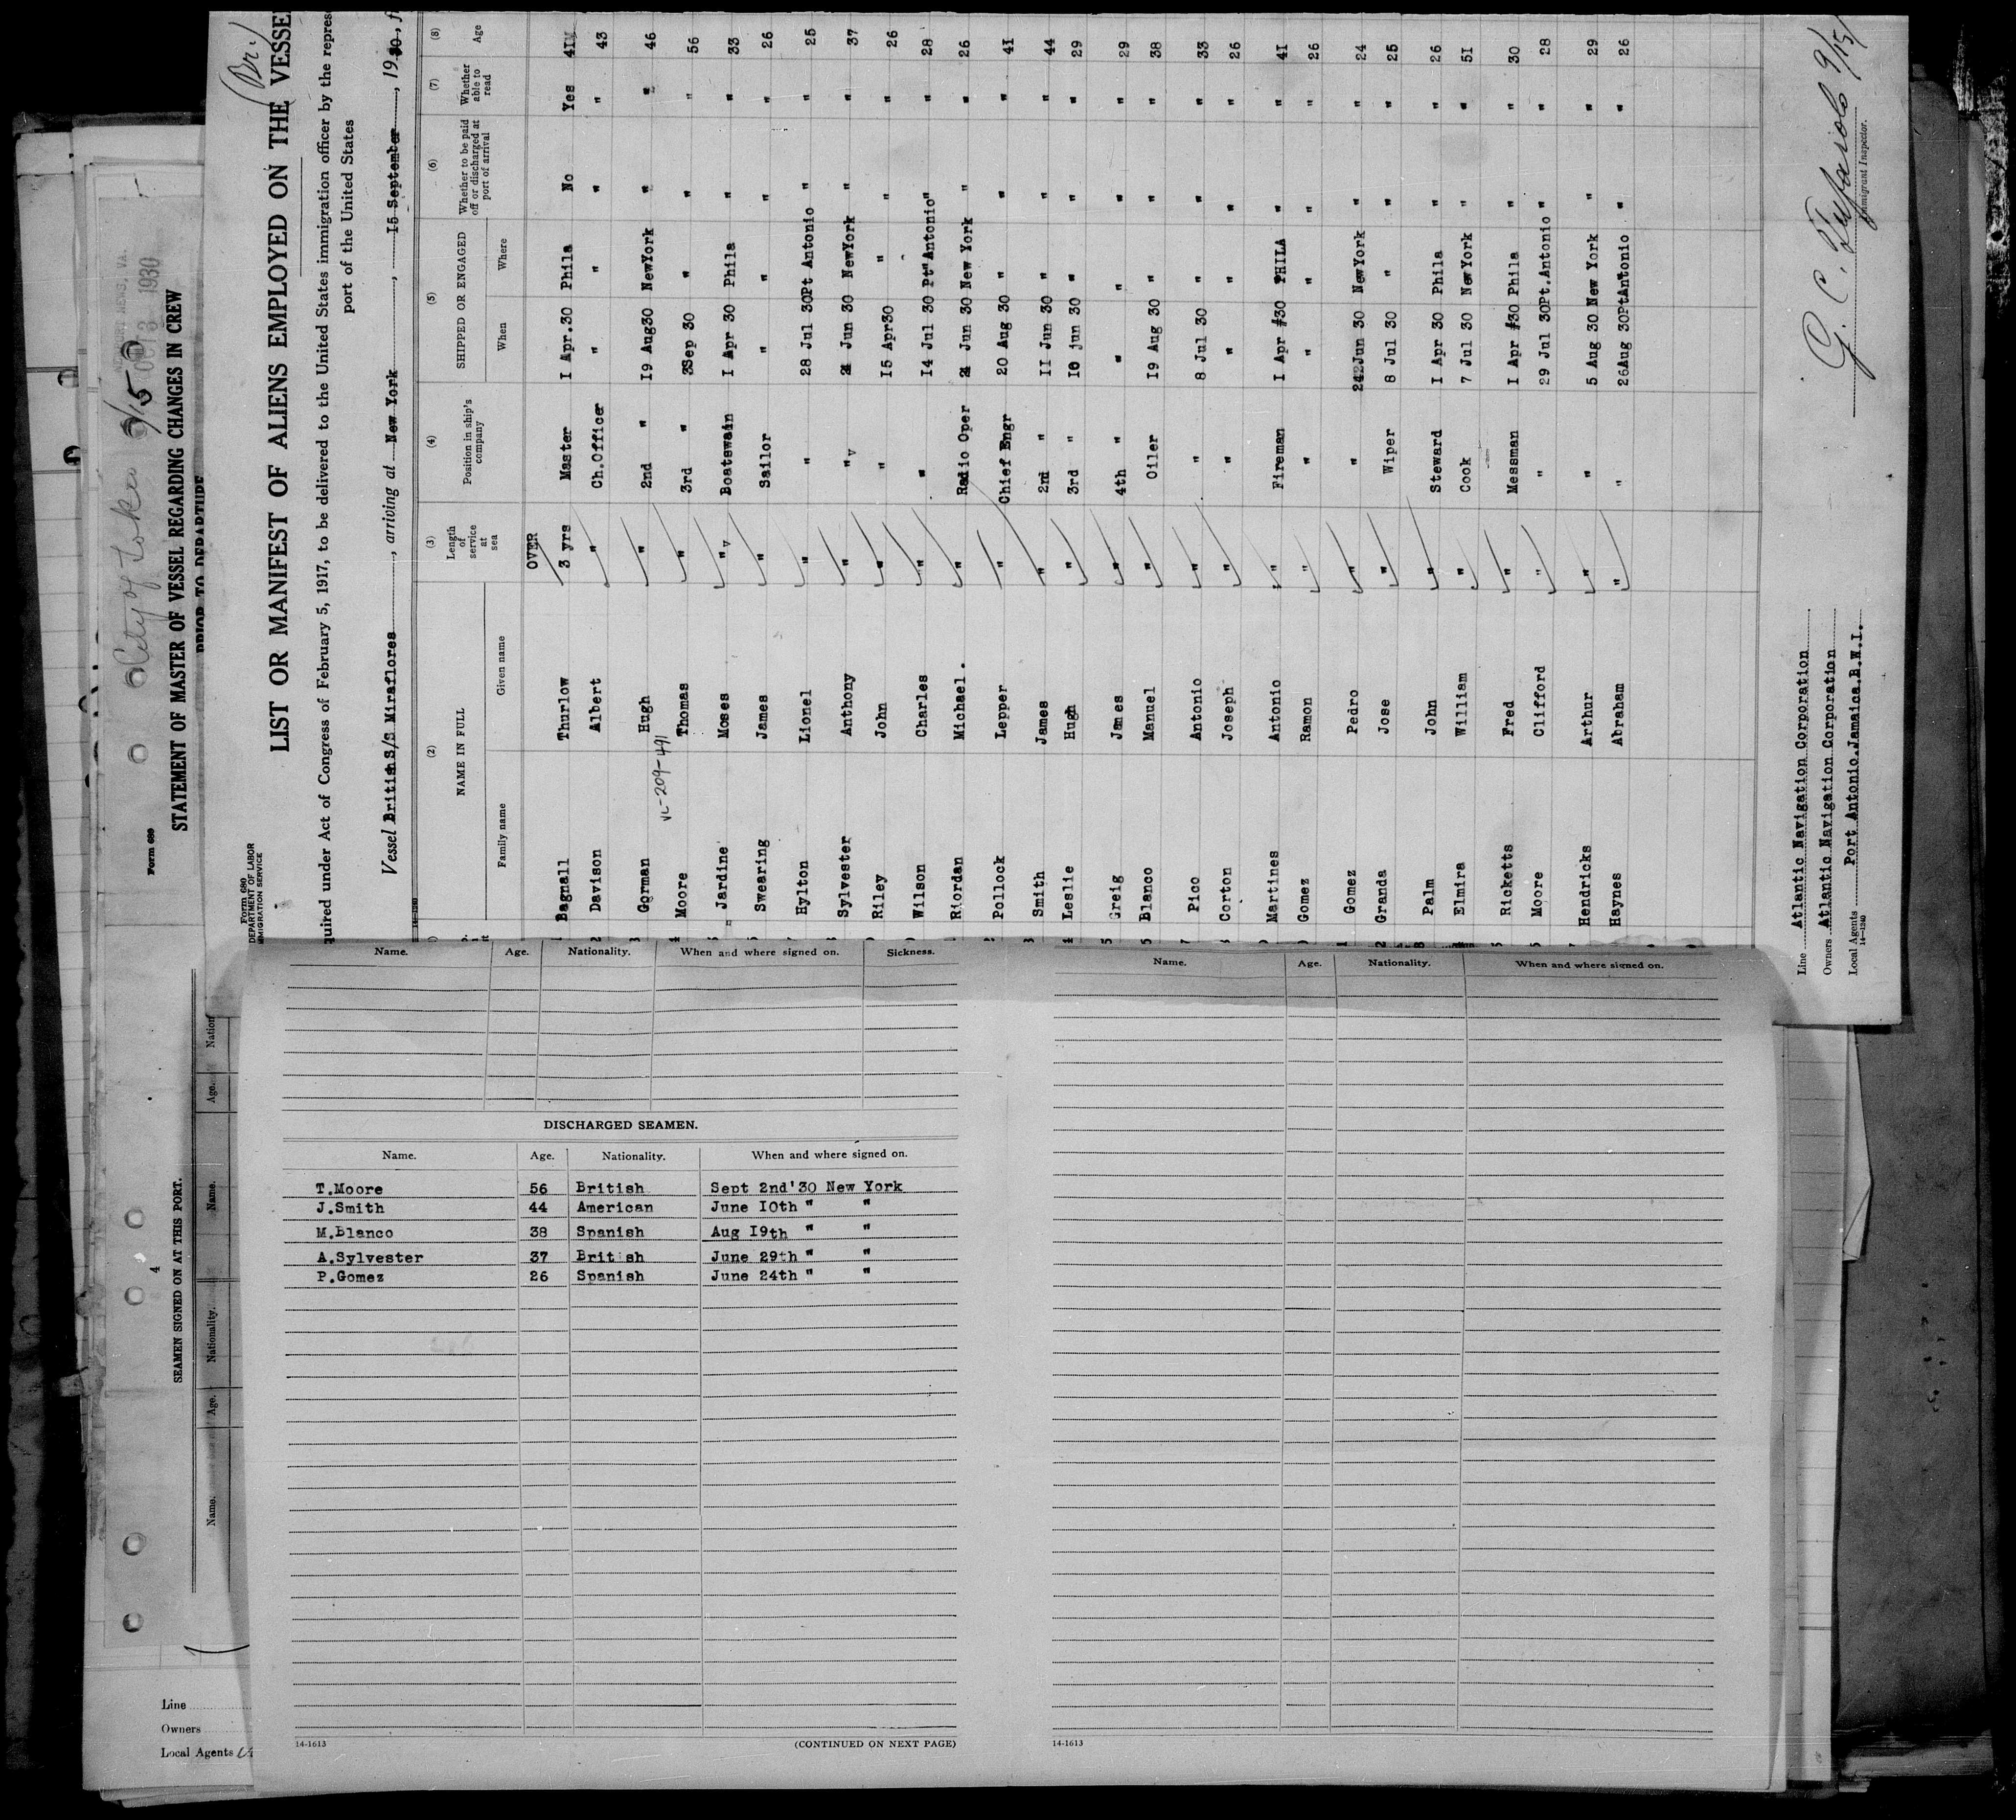 Form 680
DEPARTMENT OF LABOR
IMMIGRATION SERVICE
(Br.)
LIST OR MANIFEST OF ALIENS EMPLOYED ON THE VESSEL
quired under Act of Congress of February 5, 1917, to be delivered to the United States immigration officer by the repres
port of the United States
Vessel British S/S Miraflores, arriving at New York, 15 September, 1930, f
(2) (3) (4) (5) (6) (7) (8)
NAME IN FULL Length of service at sea Position in ship's company SHIPPED OR ENGAGED Whether to be paid off or discharged at port of arrival Whether able to read Age
Family name Given name When Where
OVER
Bagnall Thurlow 3 yrs Master 1 Apr.30 Phila No Yes 41
2 Davison Albert " Ch.Officer " " " " 43
Gorman Hugh " 2nd " 19 Aug30 NewYork " " 46
VL-209-491
4 Moore Thomas " 3rd " Sep 30 " " " 56
Jardine Moses " Boatswain 1 Apr 30 Phila " " 33
Swearing James " Sailor " " " " 26
Hylton Lionel " " 28 Jul 30Pt Antonio " " 25
Sylvester Anthony " " Jun 30 NewYork " " 37
Riley John " " 15 Apr30 " " " 26
Wilson Charles " " 14 Jul 30 Pt"Antonio" " 28
Riordan Michael. " Radio Oper Jun 30 New York " " 26
Pollock Lepper " Chief Engr 20 Aug 30 " " " 41
Smith James " 2nd " 11 Jun 30 " " " 44
Leslie Hugh " 3rd " 10 jun 30 " " " 29
Greig James " 4th " " " " " 29
Blanco Manuel " Oiler 19 Aug 30 " " " 38
Pico Antonio " " 8 Jul 30 " " " 33
Corton Joseph " " " " " " 26
Martines Antonio " Fireman 1 Apr 30 PHILA " " 41
Gomez Ramon " " " " " " 26
Gomez Pedro " " Jun 30 NewYork " " 24
2 Granda Jose " Wiper 8 Jul 30 " " " 25
Palm John " Steward 1 Apr 30 Phila " " 26
Elmira William " Cook 7 Jul 30 NewYork " " 51
Ricketts Fred " Messman 1 Apr 30 Phila " " 30
Moore Clifford " " 29 Jul 30Pt.Antonio " " 28
Hendricks Arthur " " 5 Aug 30 New York " " 29
Haynes Abraham " " 26Aug 30PtAntonio " " 26
Line Atlantic Navigation Corporation
Owners Atlantic Navigation Corporation
Local Agents Port Antonio.Jamaica.B.W.I.
14-1240
9/15/
Immigrant Inspector.
Form 689
City of
9/15
OCT 3 1930
STATEMENT OF MASTER OF VESSEL REGARDING CHANGES IN CREW
PRIOR TO DEPARTURE
4
SEAMEN SIGNED ON AT THIS PORT.
Name. Age. Nationality. Name. Age. Nation
Line
Owners
Local Agents
Name. Age. Nationality. When and where signed on. Sickness.
DISCHARGED SEAMEN.
Name. Age. Nationality. When and where signed on.
T.Moore 56 British Sept 2nd'30 New York
J.Smith 44 American June 10th " "
M.Blanco 38 Spanish Aug 19th " "
A.Sylvester 37 British June 29th " "
P.Gomez 26 Spanish June 24th " "
14-1613 (CONTINUED ON NEXT PAGE)
Name. Age. Nationality. When and where signed on.
14-1613